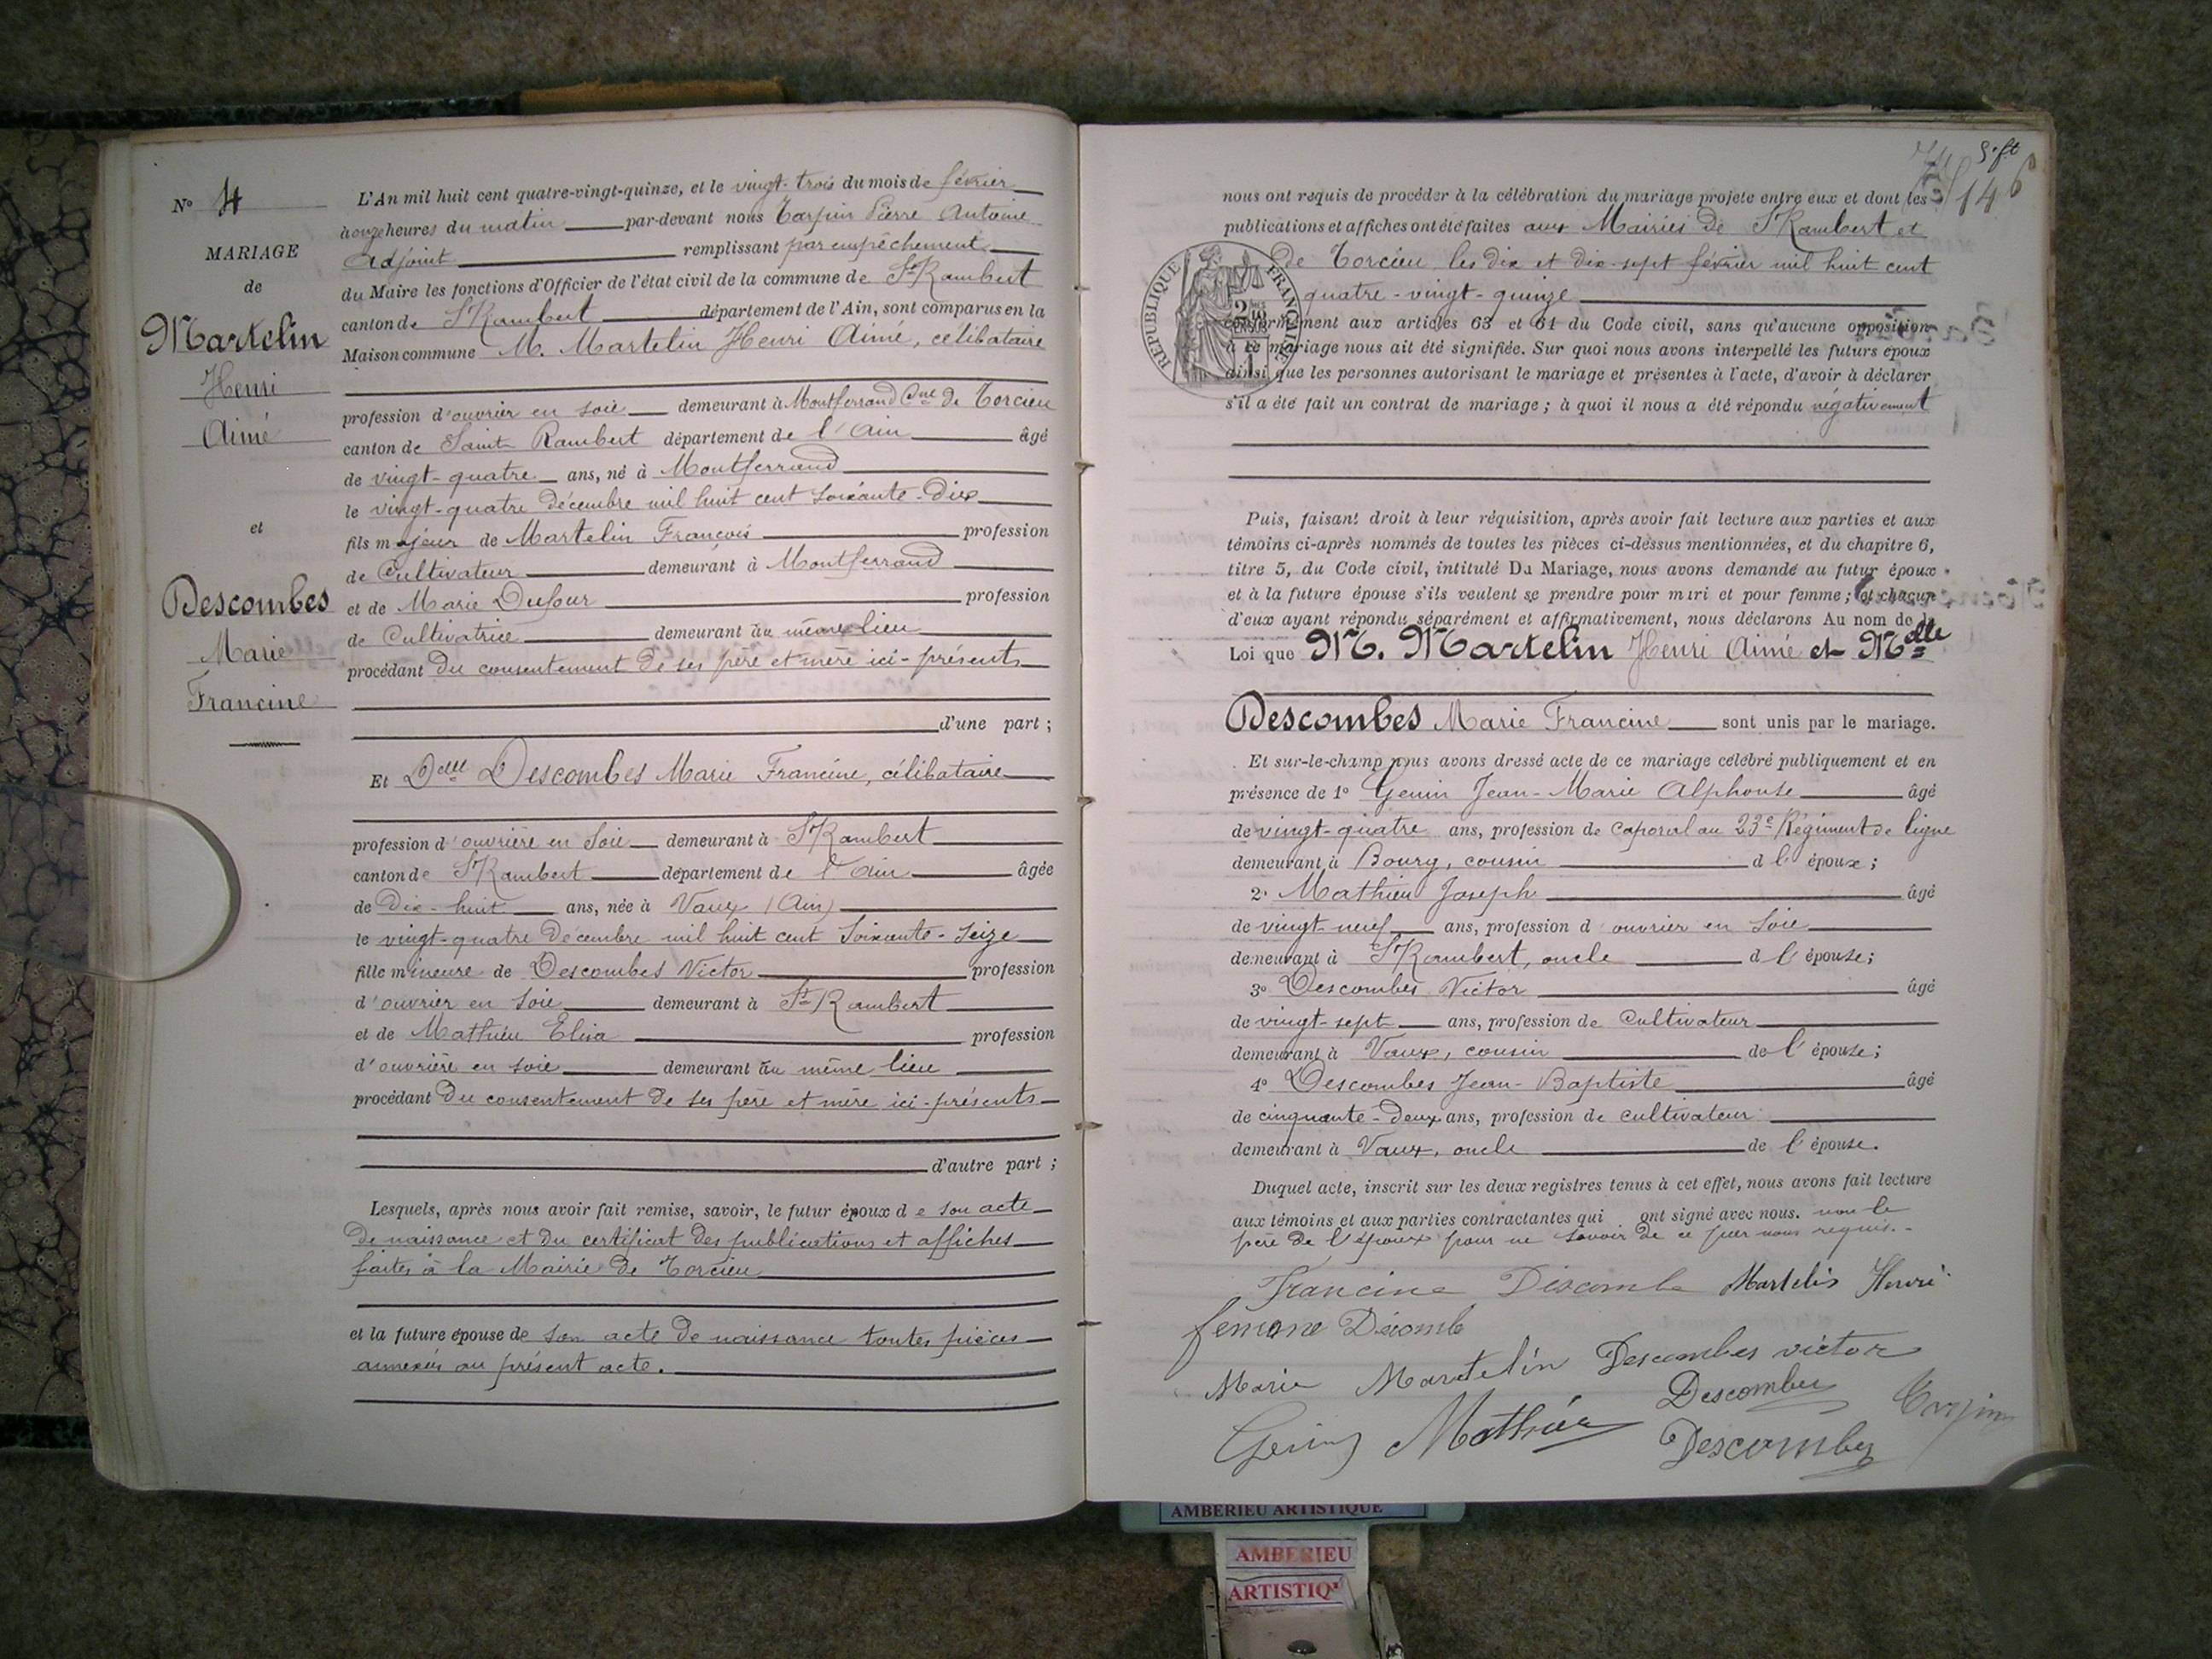 N° 4
MARIAGE
de
Martelin
Henri
Aimé
et
Descombes
Marie
Francine
L'An mil huit cent quatre-vingt-quinze, et le vingt-trois du mois de février
à onze heures du matin par-devant nous Tarpin Pierre Antoine
adjoint remplissant par empêchement
du Maire les fonctions d'Officier de l'état civil de la commune de St Rambert
canton de St Rambert département de l'Ain, sont comparus en la
Maison commune M. Martelin Henri Aimé, célibataire
profession d'ouvrier en soie demeurant à Montferrand Cne de Torcieu
canton de Saint Rambert département de l'Ain âgé
de vingt-quatre ans, né à Montferrand
le vingt-quatre décembre mil huit cent soixante-dix
fils majeur de Martelin François profession
de Cultivateur demeurant à Montferrand
et de Marie Dufour profession
de Cultivatrice demeurant au même lieu
procédant du consentement de ses père et mère ici-présents
d'une part ;
Et Delle Descombes Marie Francine, célibataire
profession d'ouvrière en soie demeurant à St Rambert
canton de St Rambert département de l'Ain âgée
de Dix-huit ans, née à Vaux (Ain)
le vingt-quatre Décembre mil huit cent soixante-seize
fille mineure de Descombes Victor profession
d'ouvrier en soie demeurant à St Rambert
et de Mathieu Elisa profession
d'ouvrière en soie demeurant au même lieu
procédant du consentement de ses père et mère ici-présents
d'autre part ;
Lesquels, après nous avoir fait remise, savoir, le futur époux de son acte
de naissance et du certificat des publications et affiches
faites à la Mairie de Torcieu
et la future épouse de son acte de naissance toutes pièces
annexées au présent acte.
146
nous ont requis de procéder à la célébration du mariage projeté entre eux et dont les
publications et affiches ont été faites aux Mairies de St Rambert et
de Torcieu les dix et dix-sept février mil huit cent
quatre-vingt-quinze
RÉPUBLIQUE FRANÇAISE
conformément aux articles 63 et 64 du Code civil, sans qu'aucune opposition
à ce mariage nous ait été signifiée. Sur quoi nous avons interpellé les futurs époux
ainsi que les personnes autorisant le mariage et présentes à l'acte, d'avoir à déclarer
s'il a été fait un contrat de mariage ; à quoi il nous a été répondu négativement
Puis, faisant droit à leur réquisition, après avoir fait lecture aux parties et aux
témoins ci-après nommés de toutes les pièces ci-dessus mentionnées, et du chapitre 6,
titre 5, du Code civil, intitulé Du Mariage, nous avons demandé au futur époux
et à la future épouse s'ils veulent se prendre pour mari et pour femme ; et chacun
d'eux ayant répondu séparément et affirmativement, nous déclarons Au nom de la
Loi que M. Martelin Henri Aimé et Mdelle
Descombes Marie Francine sont unis par le mariage.
Et sur-le-champ nous avons dressé acte de ce mariage célébré publiquement et en
présence de 1° Genin Jean-Marie Alphonse âgé
de vingt-quatre ans, profession de caporal au 23e Régiment de ligne
demeurant à Bourg, cousin de l'époux ;
2° Mathieu Joseph âgé
de vingt-neuf ans, profession d'ouvrier en soie
demeurant à St Rambert, oncle de l'épouse ;
3° Descombes Victor âgé
de vingt-sept ans, profession de Cultivateur
demeurant à Vaux, cousin de l'épouse ;
4° Descombes Jean-Baptiste âgé
de cinquante-deux ans, profession de cultivateur
demeurant à Vaux, oncle de l'épouse.
Duquel acte, inscrit sur les deux registres tenus à cet effet, nous avons fait lecture
aux témoins et aux parties contractantes qui ont signé avec nous. non le
père de l'époux pour ne savoir de ce par nous requis.
Francine Descombe Martelin Henri
femme Decomb
Marie Martelin Descombes victor
Descombes
Genin Mathieu Tarpin
Descombes
AMBERIEU ARTISTIQUE
AMBERIEU
ARTISTIQ